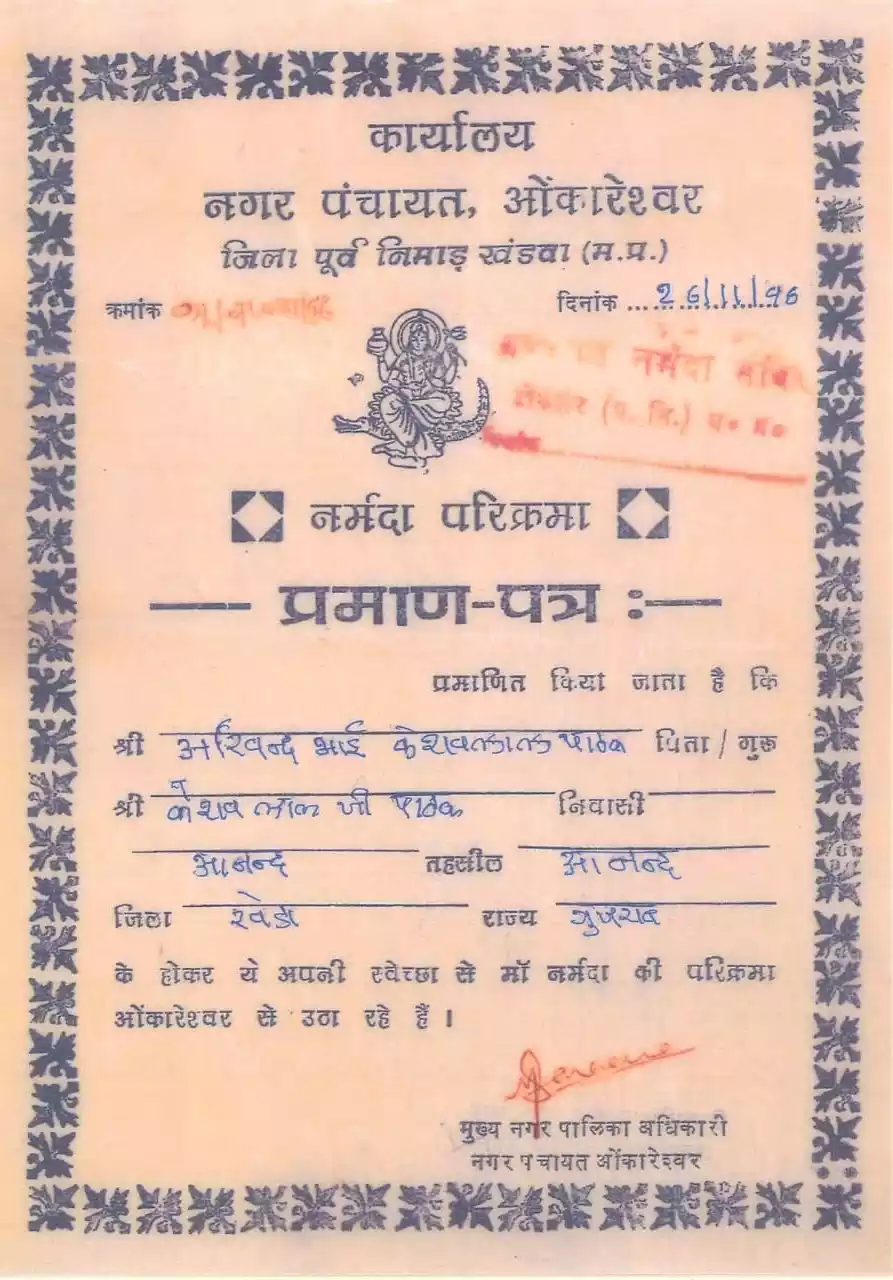 कार्यालय
नगर पंचायत, ओंकारेश्वर
जिला पूर्व निमाड़ खंडवा (म.प्र.)
क्रमांक
दिनांक ...26/11/96
नर्मदा
नर्मदा परिक्रमा
प्रमाण-पत्र :
प्रमाणित किया जाता है कि
श्री अरविन्द भाई केशवलाल पाठक पिता / गुरू
श्री केशव लाल जी पाठक निवासी
आनन्द तहसील आनन्द
जिला खेडा राज्य गुजरात
के होकर ये अपनी स्वेच्छा से माँ नर्मदा की परिक्रमा
ओंकारेश्वर से उठा रहे हैं ।
मुख्य नगर पालिका अधिकारी
नगर पचायत ओंकारेश्वर